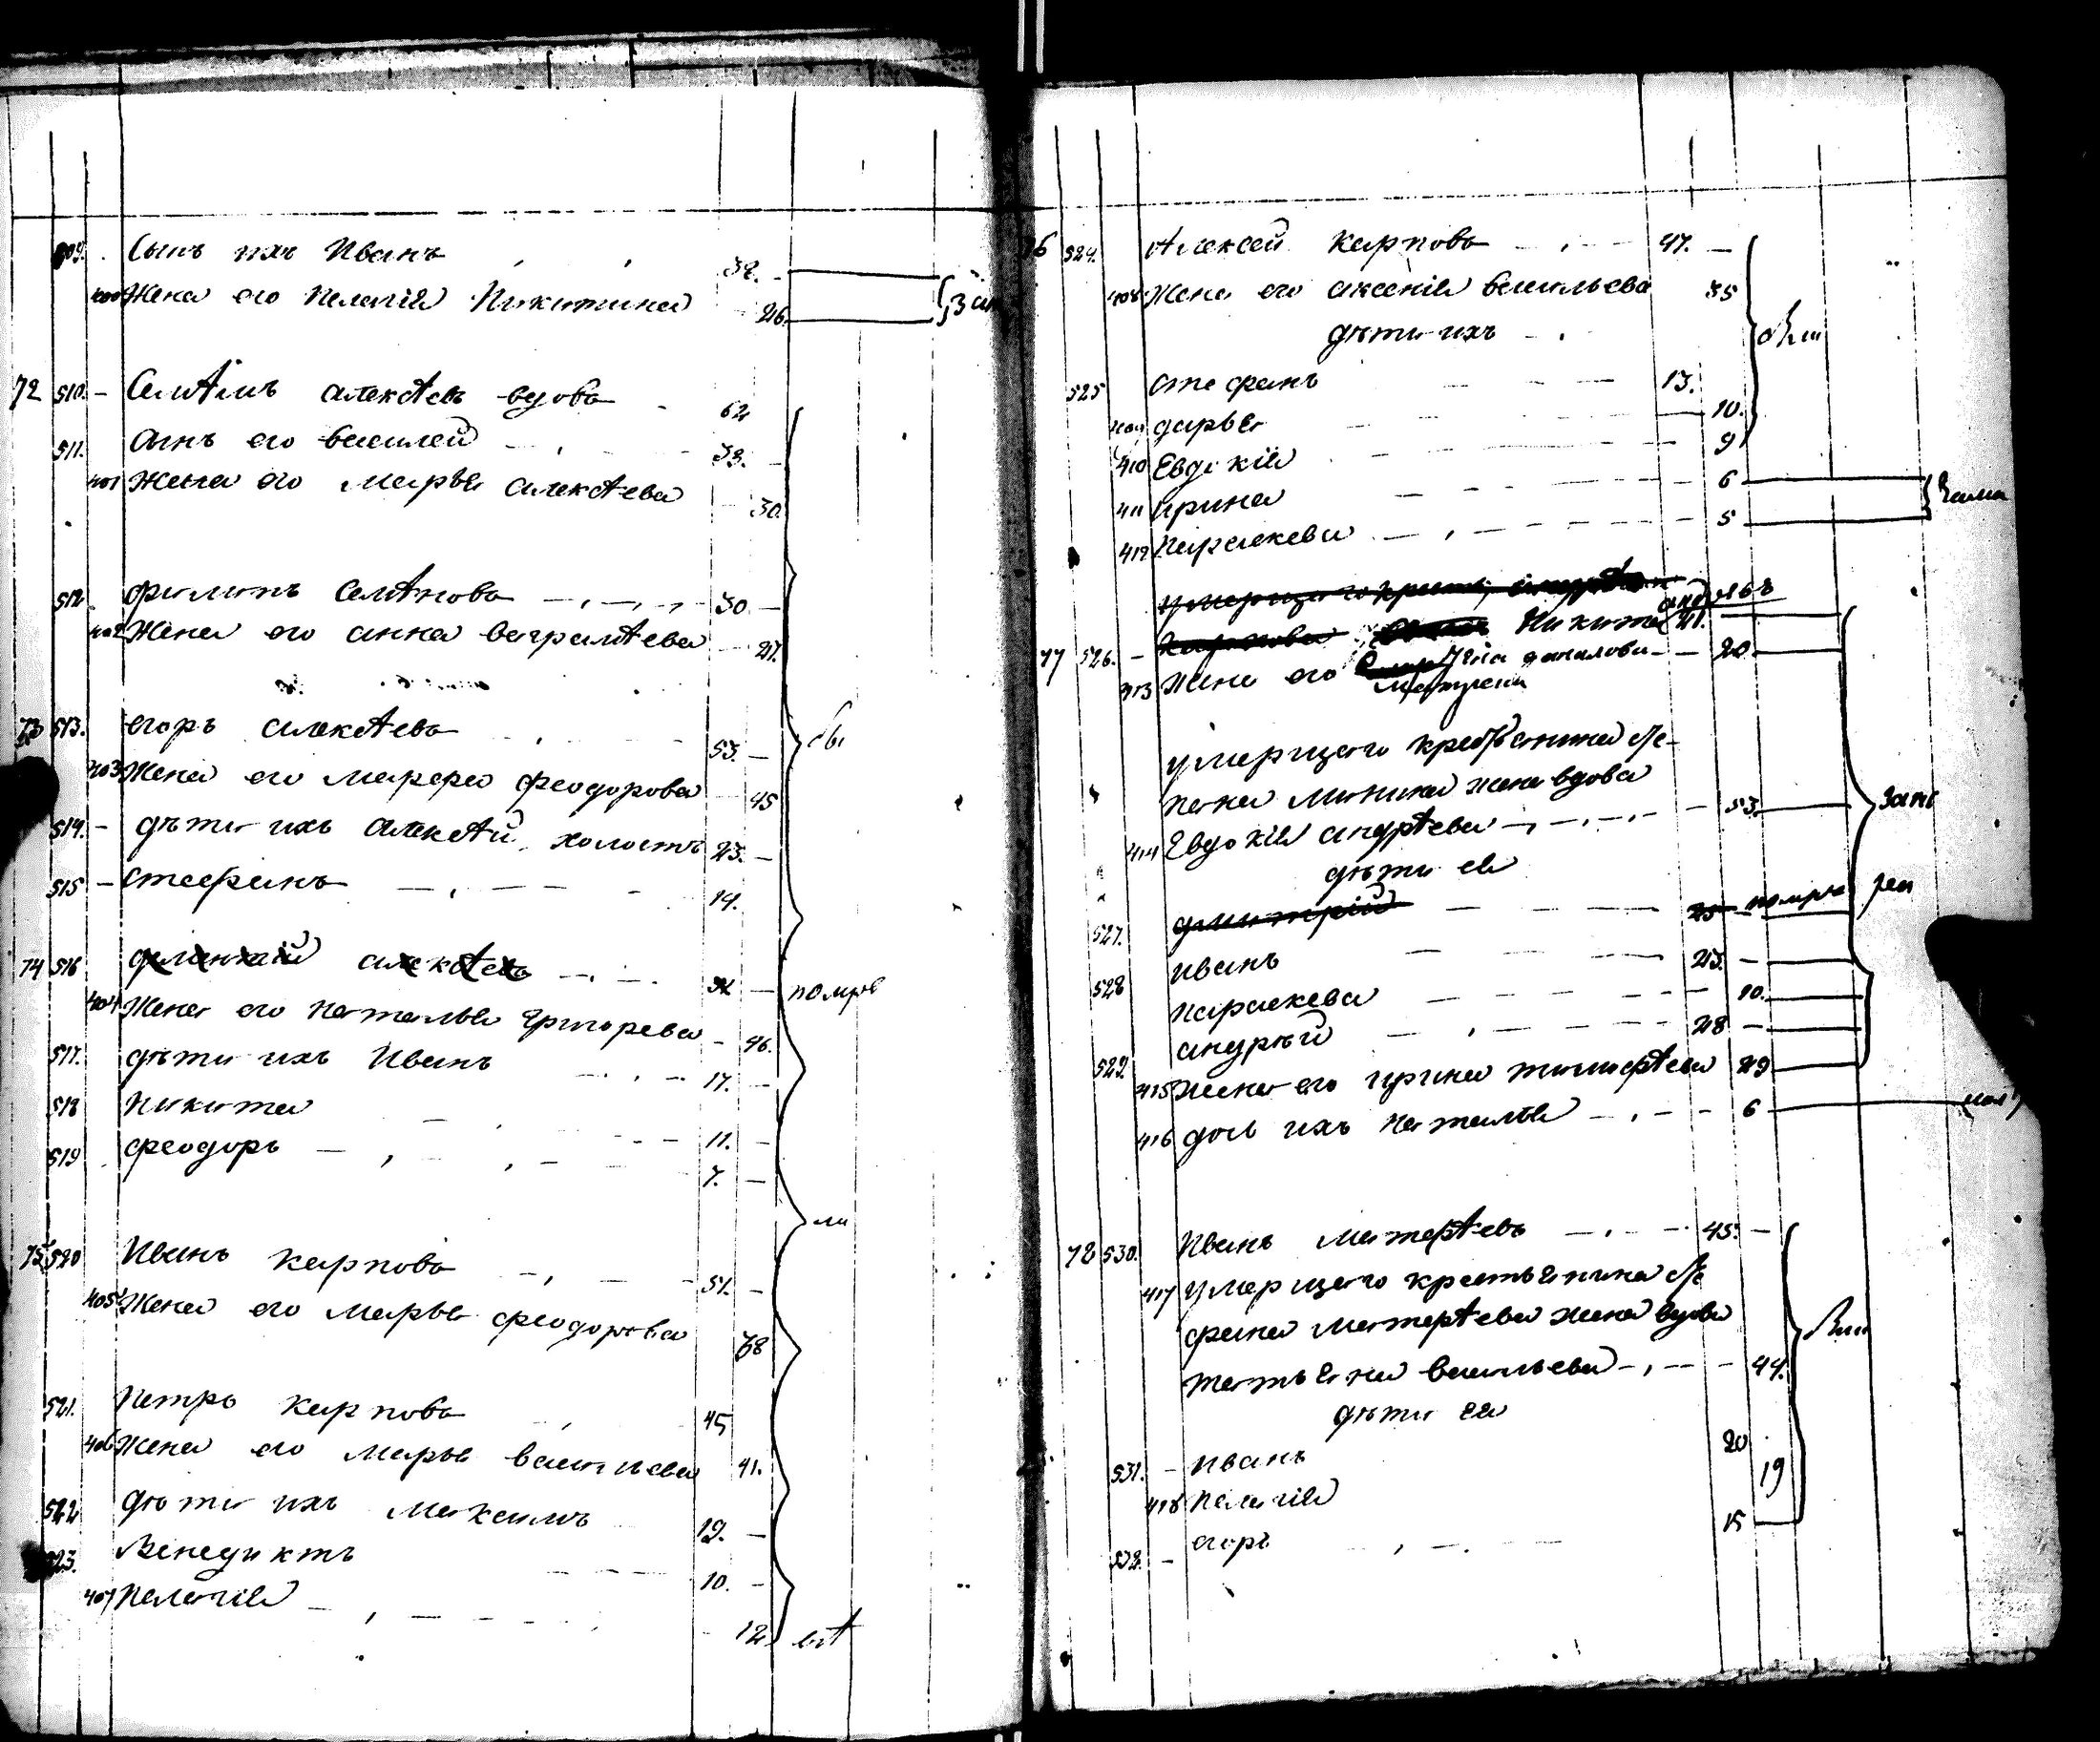 509. Сынъ ихъ Иванъ 32.
400 Жена его Пелагія Никитина 26.
72 510. Семіонъ алексѣевъ вдовъ 62
511. Сынъ его василей 33.
401 Жена его марья алексѣева 30.
512 филипъ Семѣновъ 30.
402 Жена его анна варфаламѣева 27.
73 513. егоръ алексѣевъ 53.
сы
403 Жена его марфа феодорова 45
514. дѣти ихъ алексѣй холостъ 23.
515 стефанъ 14.
74 516 алексѣевъ
помре
404 Жена его наталья григорева 46.
517. дѣти ихъ Иванъ 17.
518 Никита 11.
519 феодоръ 7.
ли
75 520 Иванъ карповъ 51.
405 Жена его марья феодорова 38
521. Петръ карповъ 45
406 Жена его марья васильева 41.
522 дѣти ихъ максимъ 19.
523. Венедиктъ 10.
407 Пелагія 12
всѣ
76 524. Алексей карповъ 47.
408 жена его аксенія васильева 35
дѣти ихъ
были
525 стефанъ 13.
409 дарья 10.
410 Евдокія 9
411 ирина 6
412 параскева 5
77 526. Никита 21.
413 жена его данилова 20.
матрена
умершаго крестьянина сте-
пана минина жена вдова
414 Евдокія андрѣева 53.
дѣти ея
527. димитрій 25 помре
528 иванъ 23.
параскева 10.
529. андрѣй 28
415 жена его ирина тимофѣева 29
416 дочь ихъ наталья 6
78 530. Иванъ матвѣевъ 45.
417 умершаго крестьянина сте
фана матвѣева жена вдова
татьяна васильева 44.
дѣти ея
531. иванъ 20
418 пелагія 19
532. егоръ 15